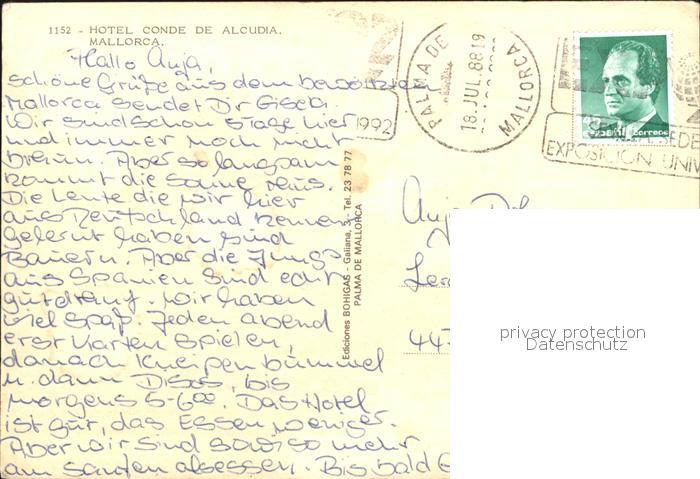 1152 - HOTEL CONDE DE ALCUDIA.
MALLORCA.
Hallo Anja,
schöne Grüße aus dem bewölkten
Mallorca sendet Dir Gisela.
Wir sind schon 5 Tage hier
und immer noch nicht
braun. Aber so langsam
kommt die Sonne raus.
Die Leute die wir hier
aus Deutschland kennen-
gelernt haben sind
Bauern. Aber die Jungs
aus Spanien sind echt
gut drauf. Wir haben
viel Spaß. Jeden abend
erst Karten spielen,
danach Kneipenbummel
u. dann Discos, bis
morgens 5-6°°. Das Hotel
ist gut, das Essen weniger.
Aber wir sind sowieso mehr
am saufen als essen. Bis bald
Ediciones BOHIGAS - Galiana, 3 - Tel. 23 78 77
PALMA DE MALLORCA
1992
PALMA DE
MALLORCA
18 JUL 88 19
Correos
SEDE
EXPOSICION UNIV
Anja
447
privacy protection
Datenschutz